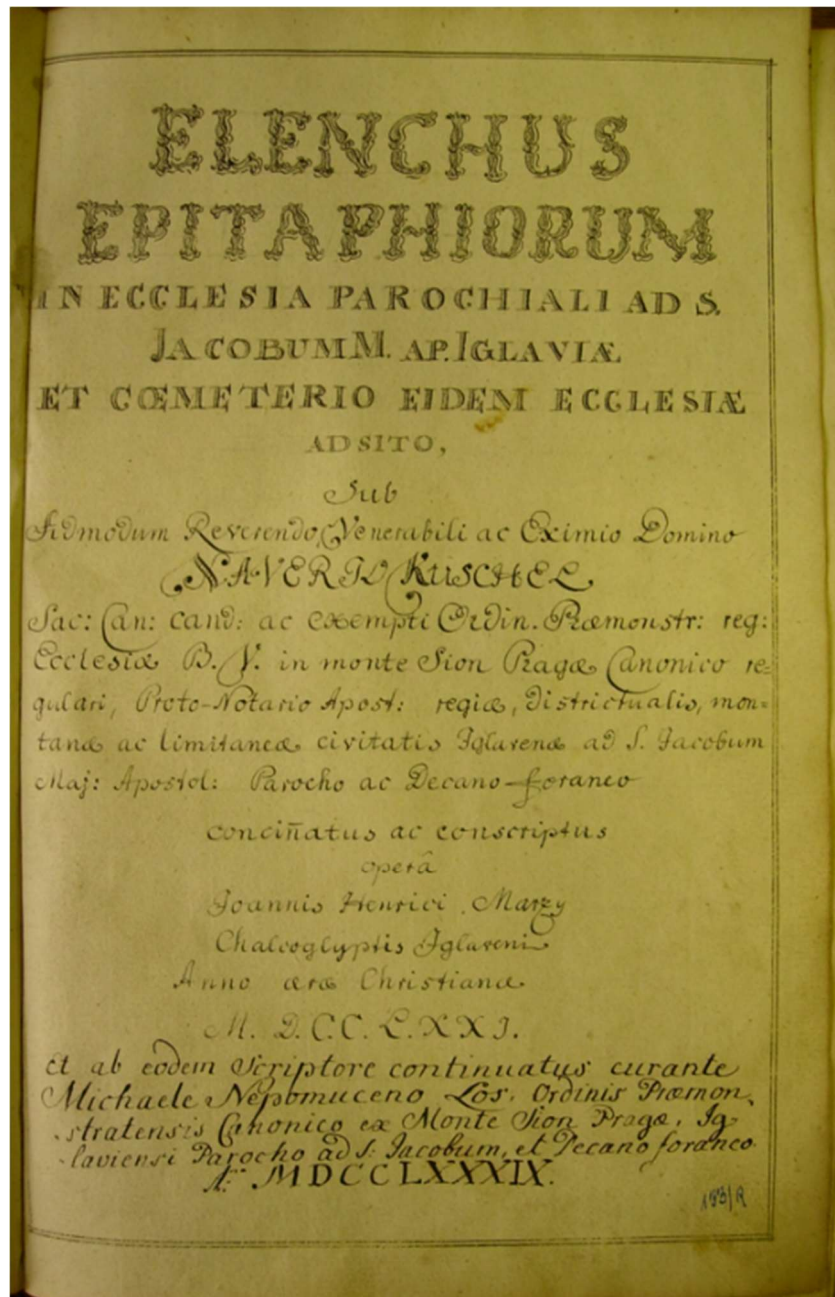 ELENCHUS
EPITAPHIORUM
IN ECCLESIA PAROCHIALI AD S.
JACOBUM M. AP. IGLAVIÆ
ET CŒMETERIO EIDEM ECCLESIÆ
ADSITO,
Sub
Admodum Reverendo, Venerabili ac Eximio Domino
KUSCHEL
Sac: Can: cand: ac exempti Ordin. Præmonstr: reg:
Ecclesiæ B. V. in monte Sion Pragæ Canonico re=
gulari, Proto-Notario Apost: regiæ, districtualis, mon=
tanæ ac limitaneæ civitatis Iglavenæ ad S. Jacobum
Maj: Apostol: Parocho ac Decano-foraneo
conciñatus ac conscriptus
operâ
Joannis Henrici Marzy
Chalcoglyptis Iglaveni
Anno æræ Christianæ
M. D. C. C. L. X X I.
et ab eodem Scriptore continuatus curante
Michaele Nepomuceno Los. Ordinis Præmon
stratensis Canonico ex Monte Sion Pragæ, Ig-
laviensi Parocho ad S. Jacobum, et Decano foraneo
A: MDCCLXXXIX.
183/R